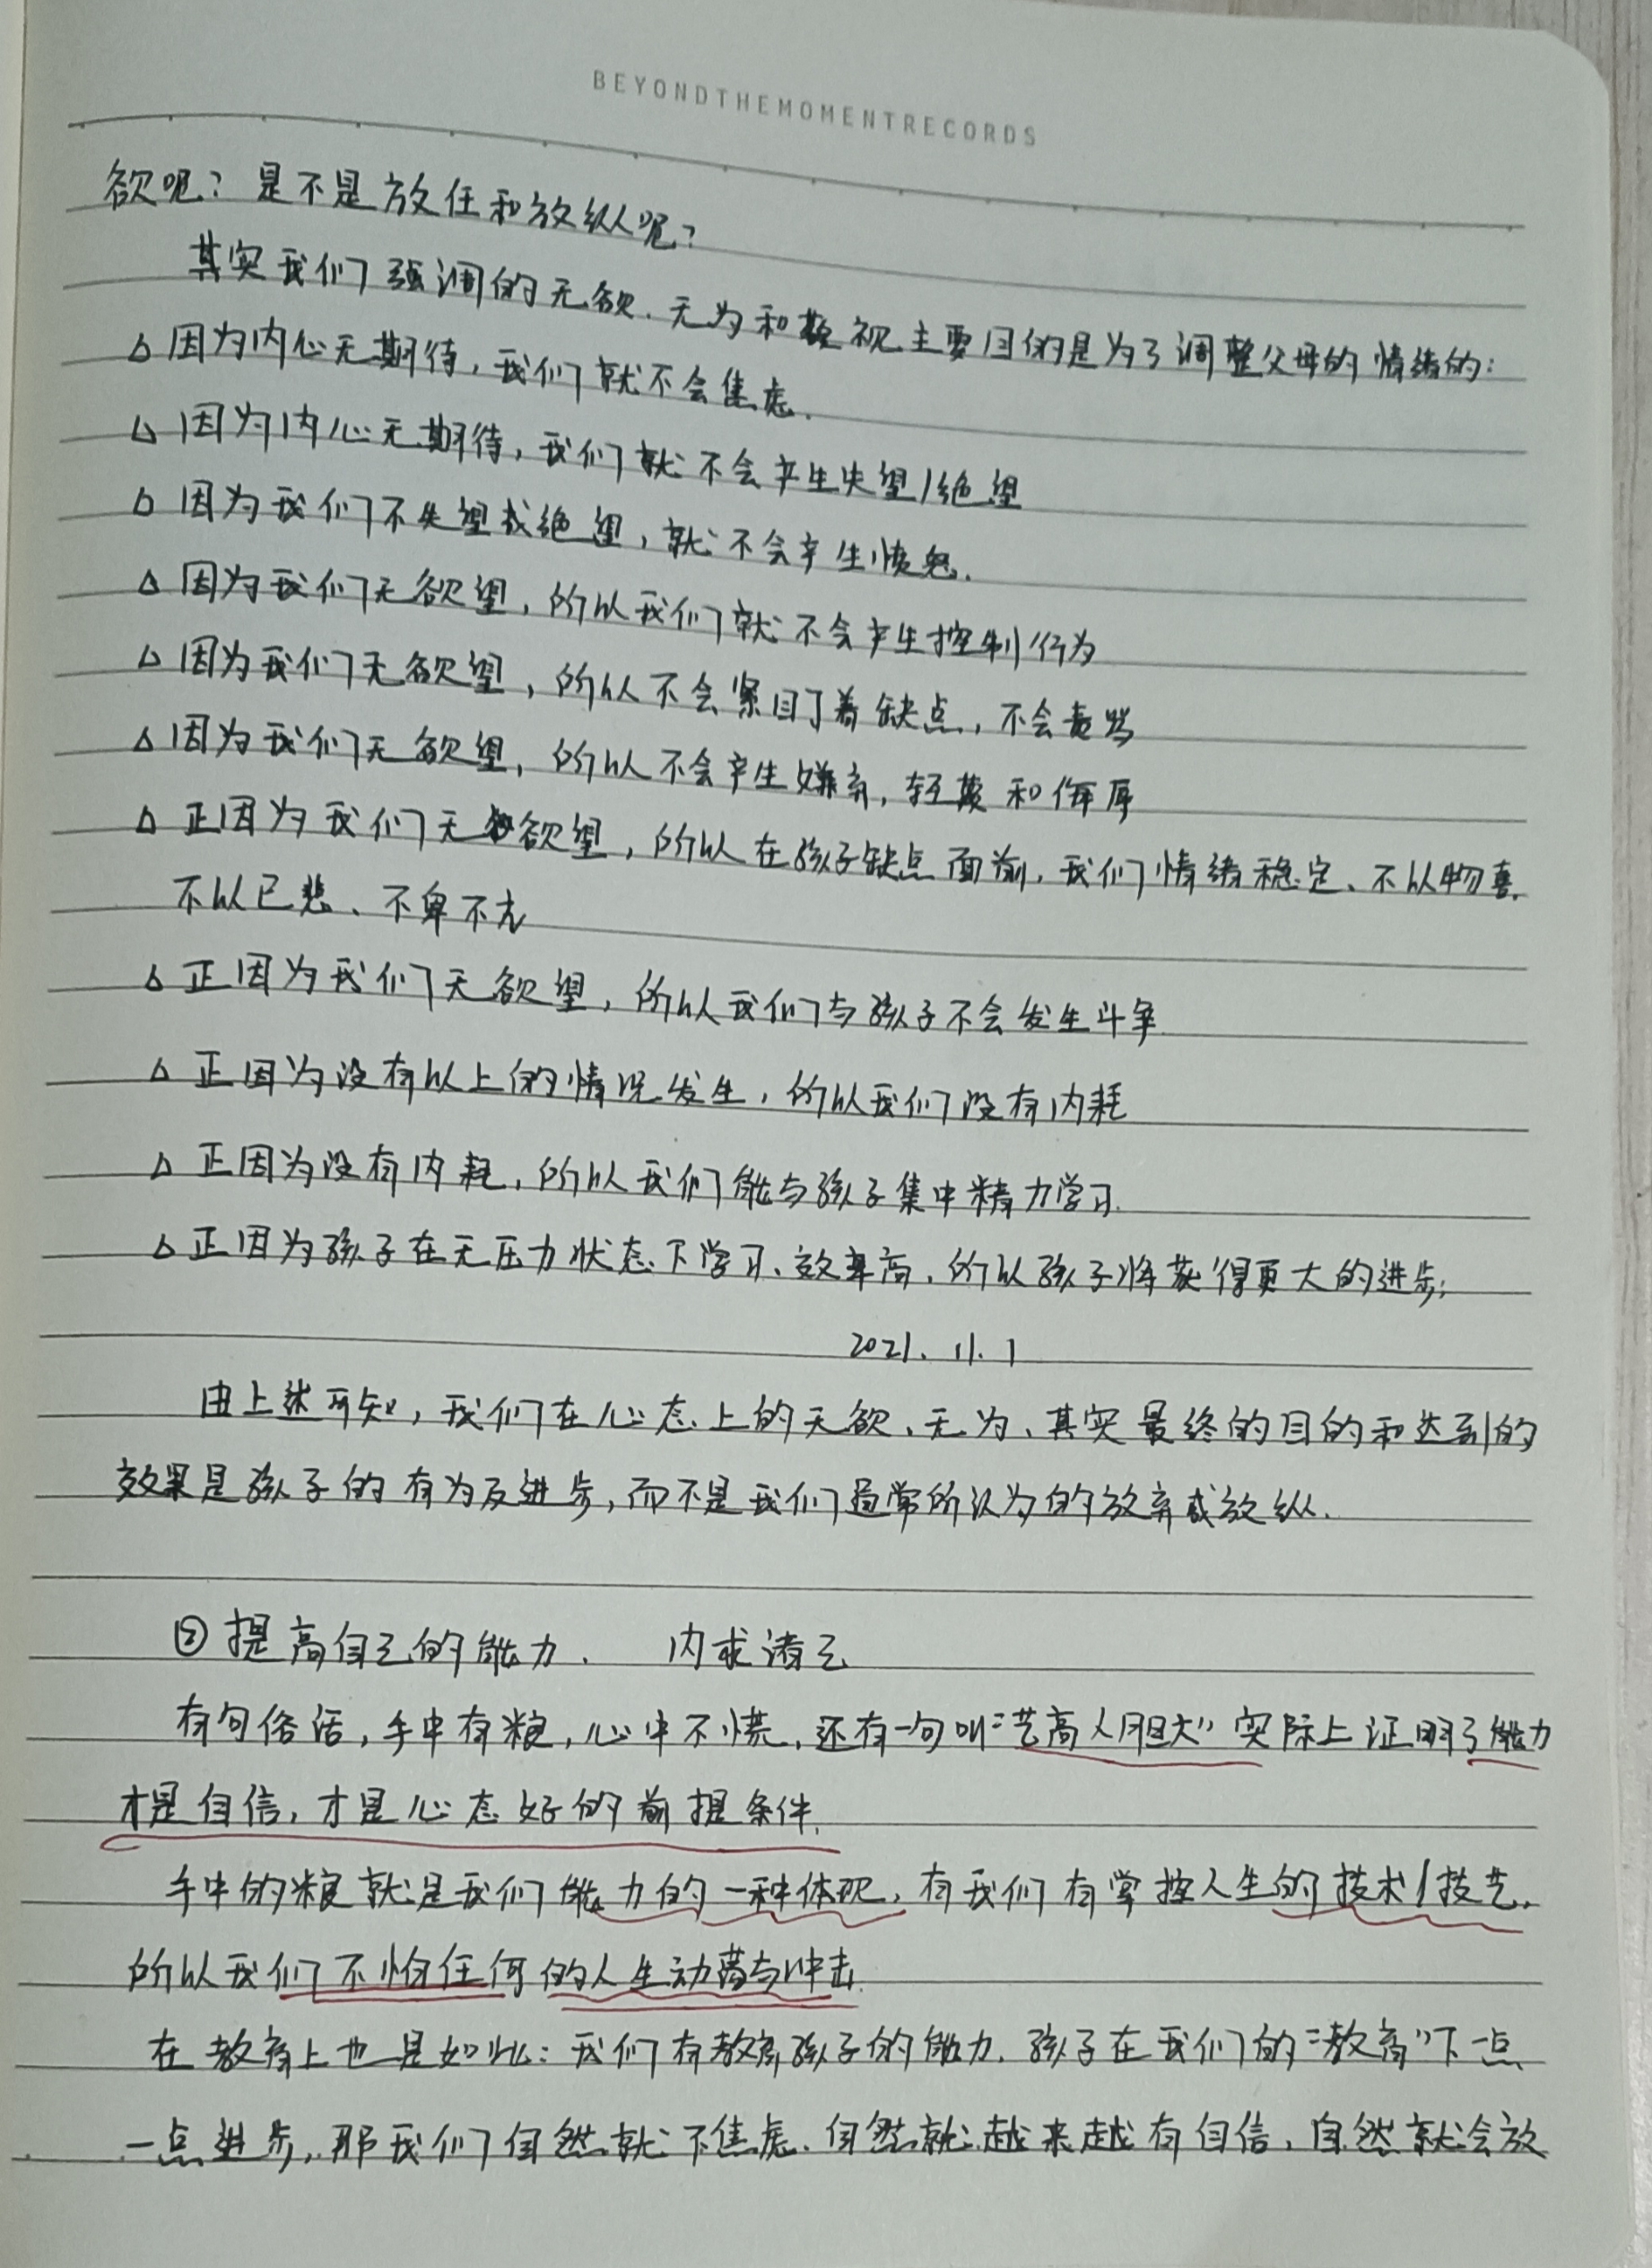 BEYONDTHEMOMENTRECORDS
欲呢？是不是放任和放纵呢？
其实我们强调的无欲、无为和视主要目的是为了调整父母的情绪的：
△因为内心无期待，我们就不会焦虑.
△因为内心无期待，我们就不会产生失望/绝望
△因为我们不失望或绝望，就不会产生愤怒.
△因为我们无欲望，所以我们就不会产生控制行为
△因为我们无欲望，所以不会紧盯着缺点，不会责骂
△因为我们无欲望，所以不会产生嫌弃，轻蔑和侮辱
△正因为我们无欲望，所以在孩子缺点面前，我们情绪稳定、不以物喜.
不以己悲、不卑不亢
△正因为我们无欲望，所以我们与孩子不会发生斗争
△正因为没有以上的情况发生，所以我们没有内耗
△正因为没有内耗，所以我们能与孩子集中精力学习.
△正因为孩子在无压力状态下学习、效率高、所以孩子将获得更大的进步；
2021.11.1
由上述可知，我们在心态上的无欲、无为、其实最终的目的和达到的
效果是孩子的有为及进步，而不是我们通常所认为的放弃或放纵.
②提高自己的能力. 内求诸己
有句俗话，手中有粮，心中不慌，还有一句叫“艺高人胆大”实际上证明了能力
才是自信，才是心态好的前提条件.
手中的粮就是我们能力的一种体现，有我们有掌控人生的技术/技艺，
所以我们不怕任何的人生动荡与冲击.
在教育上也是如此：我们有教育孩子的能力.孩子在我们的“教育”下一点
一点进步，那我们自然就不焦虑.自然就越来越有自信，自然就会放